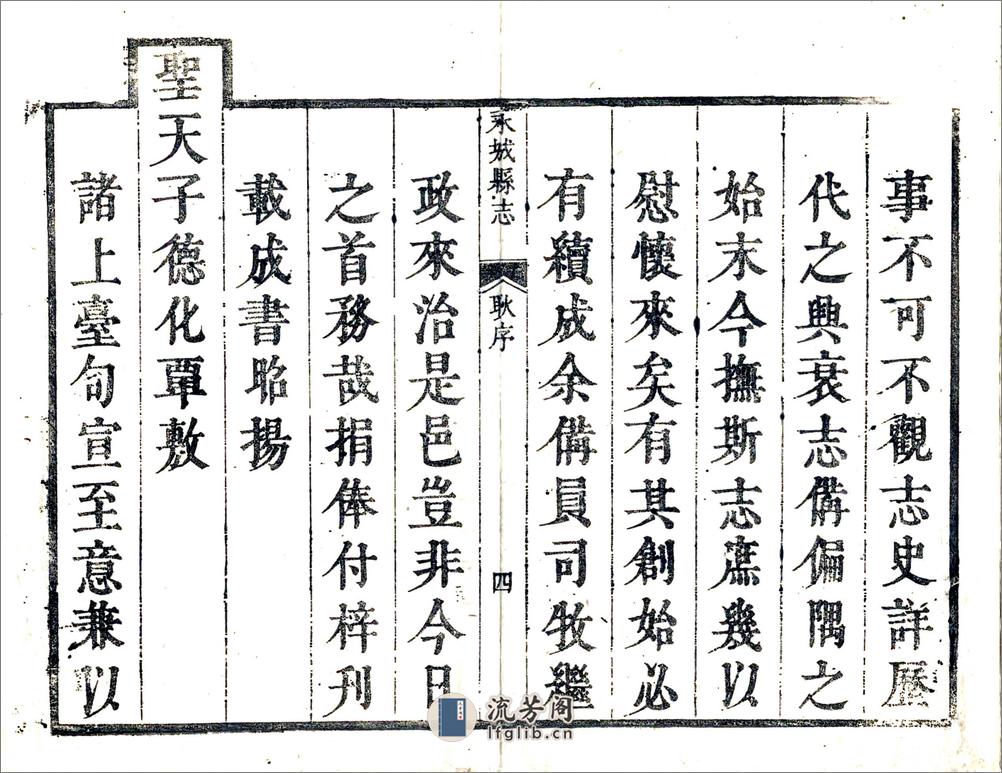 事不可不觀志史詳歷
代之興衰志備偏隅之
始末今撫斯志庶幾以
慰懷來矣有其創始必
有續成余備員司牧繼
永城縣志 耿序 四
政來治是邑豈非今日
之首務哉捐俸付梓刊
載成書昭揚
聖天子德化覃敷
諸上臺旬宣至意兼以
流芳阁
lfglib.cn